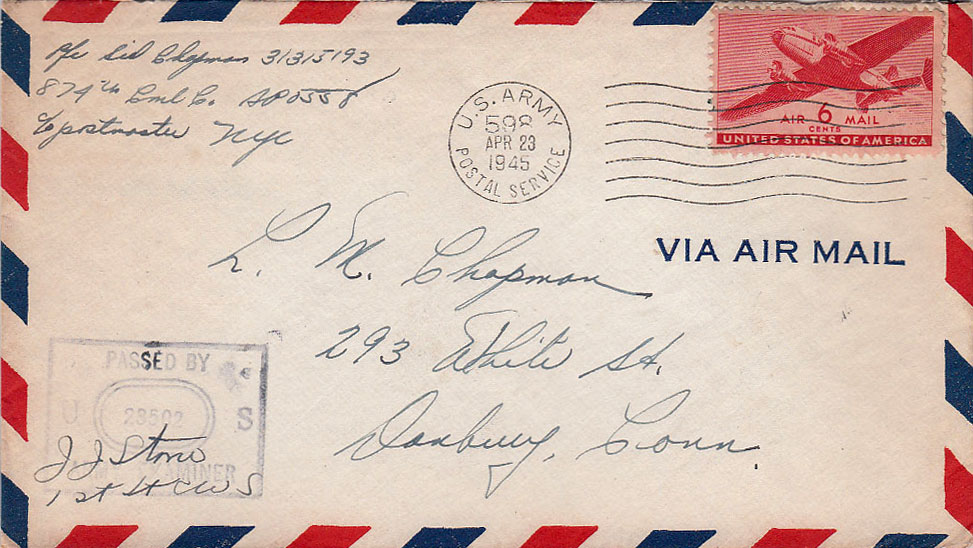 Pfc Sid Chapman 31315193
874th Cml Co. APO 558
c/o postmaster NYC
U.S. ARMY
598
APR 23
1945
POSTAL SERVICE
AIR 6 MAIL
CENTS
UNITED STATES OF AMERICA
VIA AIR MAIL
L. M. Chapman
293 White St.
Danbury, Conn.
PASSED BY
U 28502 S
EXAMINER
J J Stone
1st Lt CWS